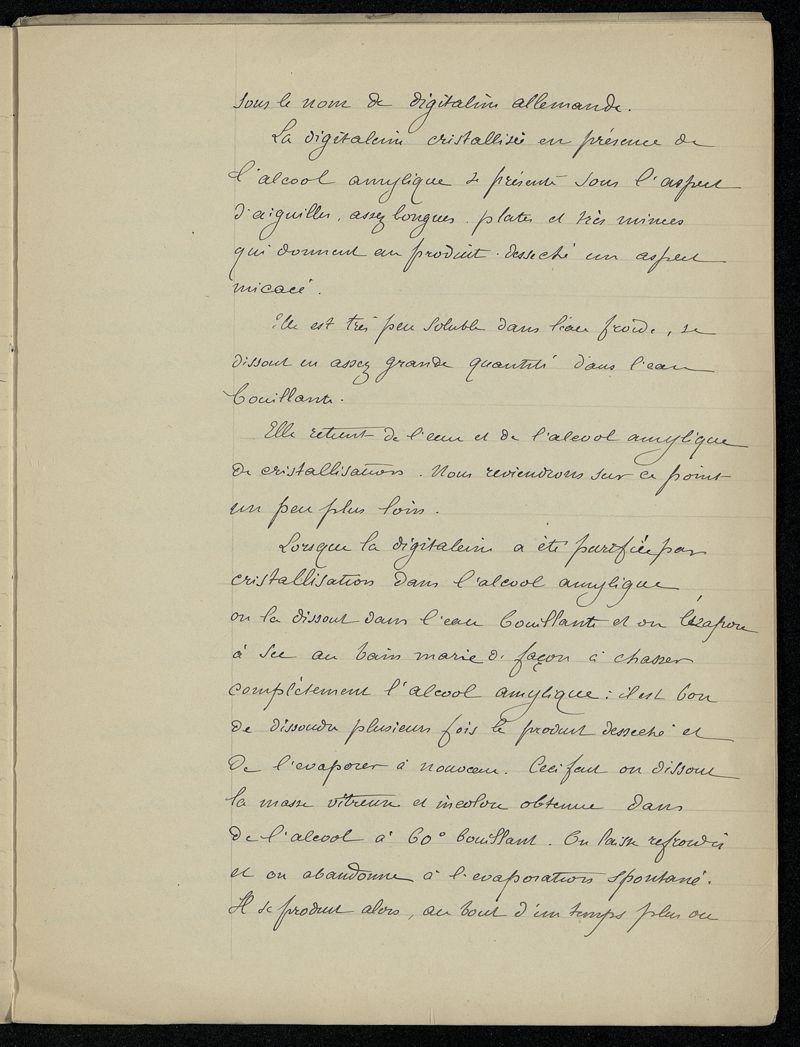 sous le nom de digitaline allemande.
La digitaleine cristallisée en présence de
l'alcool amylique se présente sous l'aspect
d'aiguilles, assez longues, plates et très minces
qui donnent au produit desseché un aspect
micacé.
Elle est très peu soluble dans l'eau froide, se
dissout en assez grande quantité dans l'eau
bouillante.
Elle retient de l'eau et de l'alcool amylique
de cristallisation. Nous reviendrons sur ce point
un peu plus loin.
Lorsque la digitaleine a été purifiée par
cristallisation dans l'alcool amylique
on la dissout dans l'eau bouillante et on l'évapore
à sec au bain marie de façon à chasser
complètement l'alcool amylique : il est bon
de dissoudre plusieurs fois le produit desseché et
de l'evaporer à nouveau. Ceci fait on dissout
la masse vitreuse et incolore obtenue dans
de l'alcool à 60° bouillant. On laisse refroidir
et on abandonne à l'evaporation spontané.
Il se produit alors, au bout d'un temps plus ou